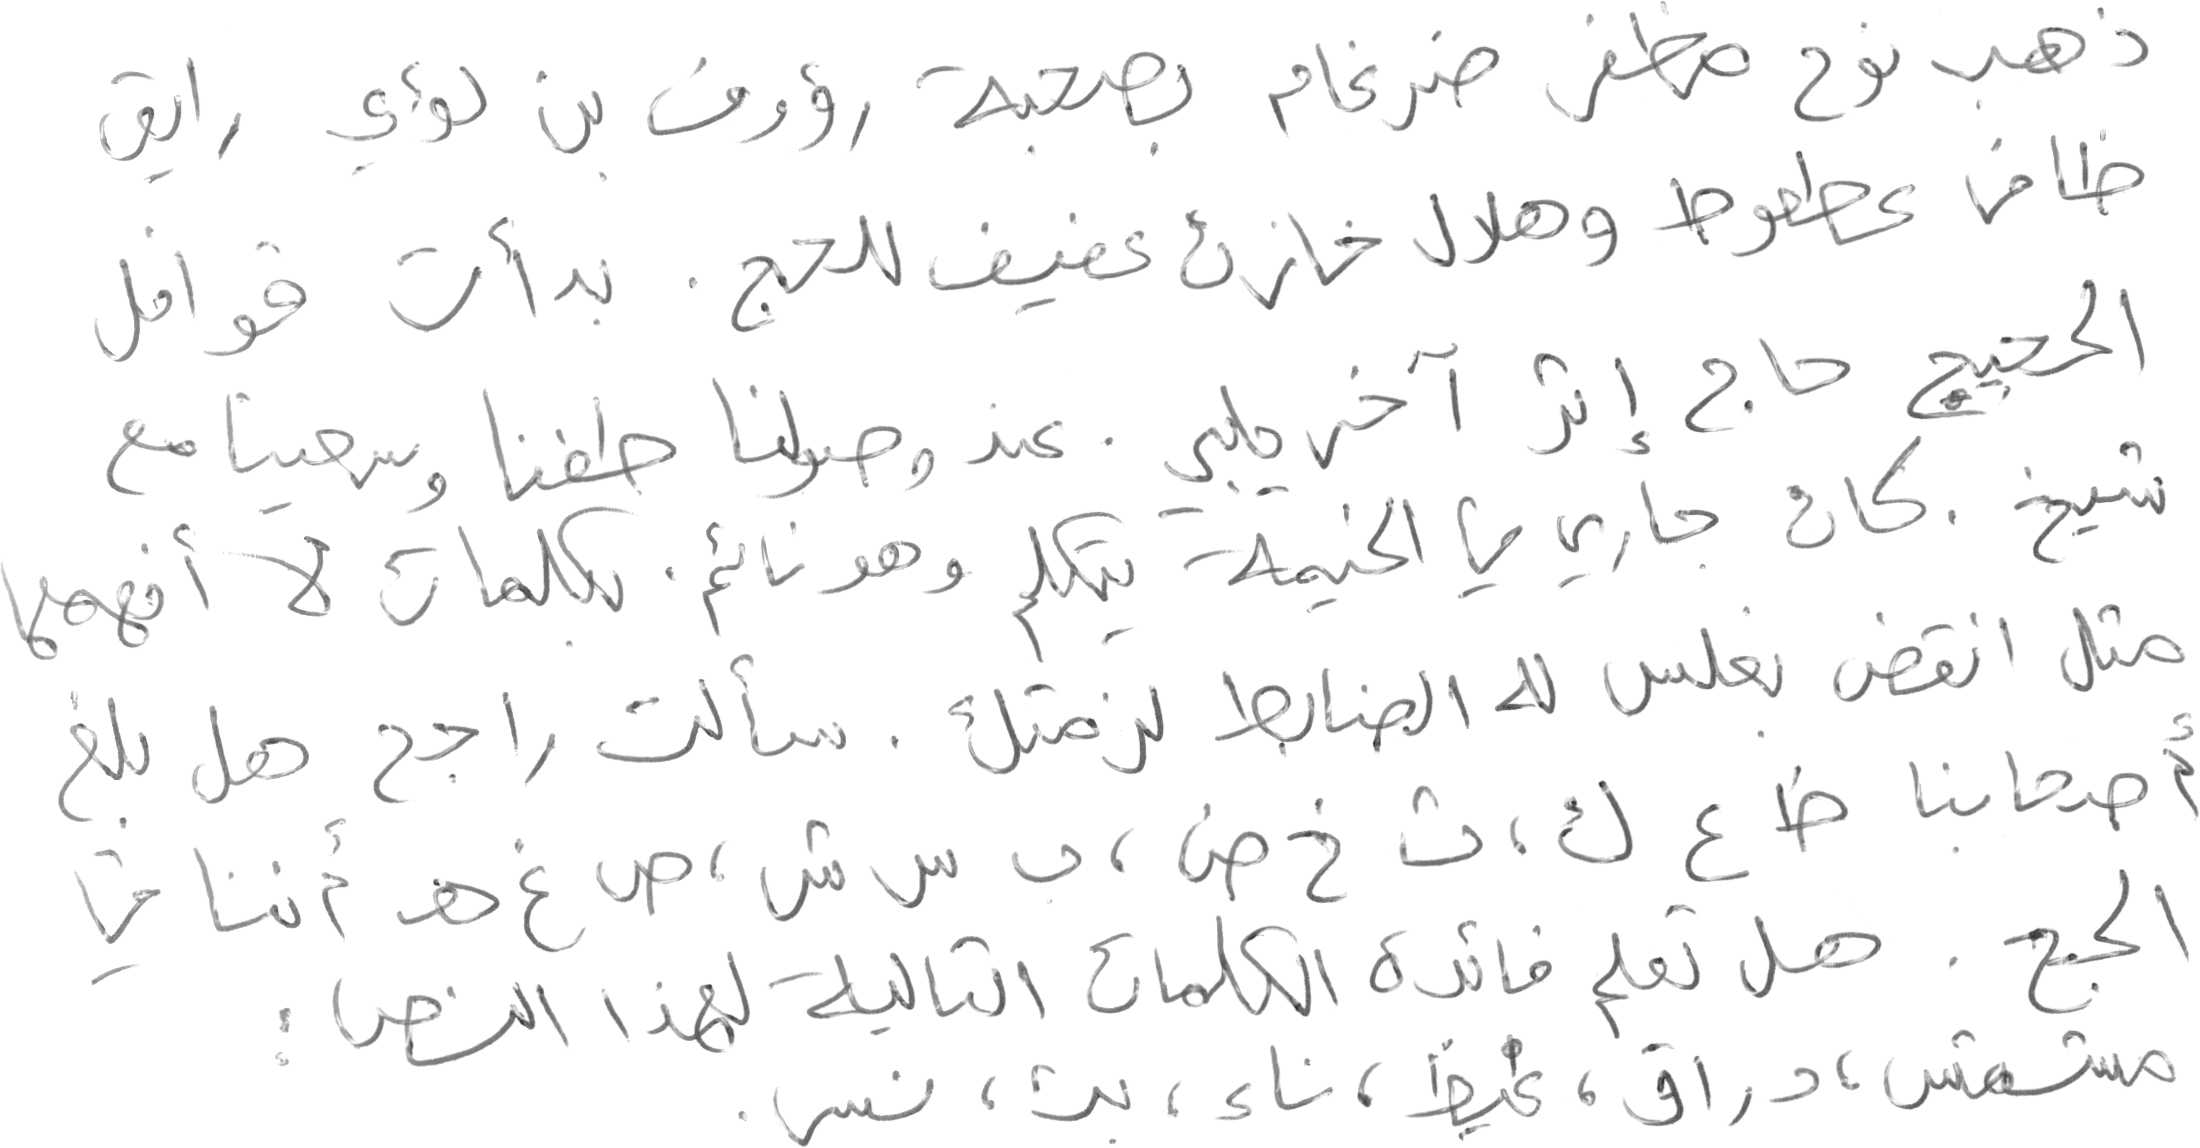 ذهب نوح مظفر ضرغام بصحبة رؤوف بن لؤي رايق
ظافر عطعوط وهلال خازن عفيف للحج . بدأت قوافل
الحجيج حاج إثر آخر يلبي . عند وصولنا طفنا وسعينا مع
شيخ . كان جاري في الخيمة يتكلم وهو نائم . بكلمات لا أفهمها
مثل انقض بغلس لله الضابط لزمتك . سألت راجح هل بلغ
أصحابنا ظ ع ك ، ث خ ض ، ب س ش ، ص غ هـ أننا في
الحج . هل تعلم فائدة الكلمات التالية لهذا النص :
مستهتر ، دراق ، غيظ ، ناء ، بث ، نسر .